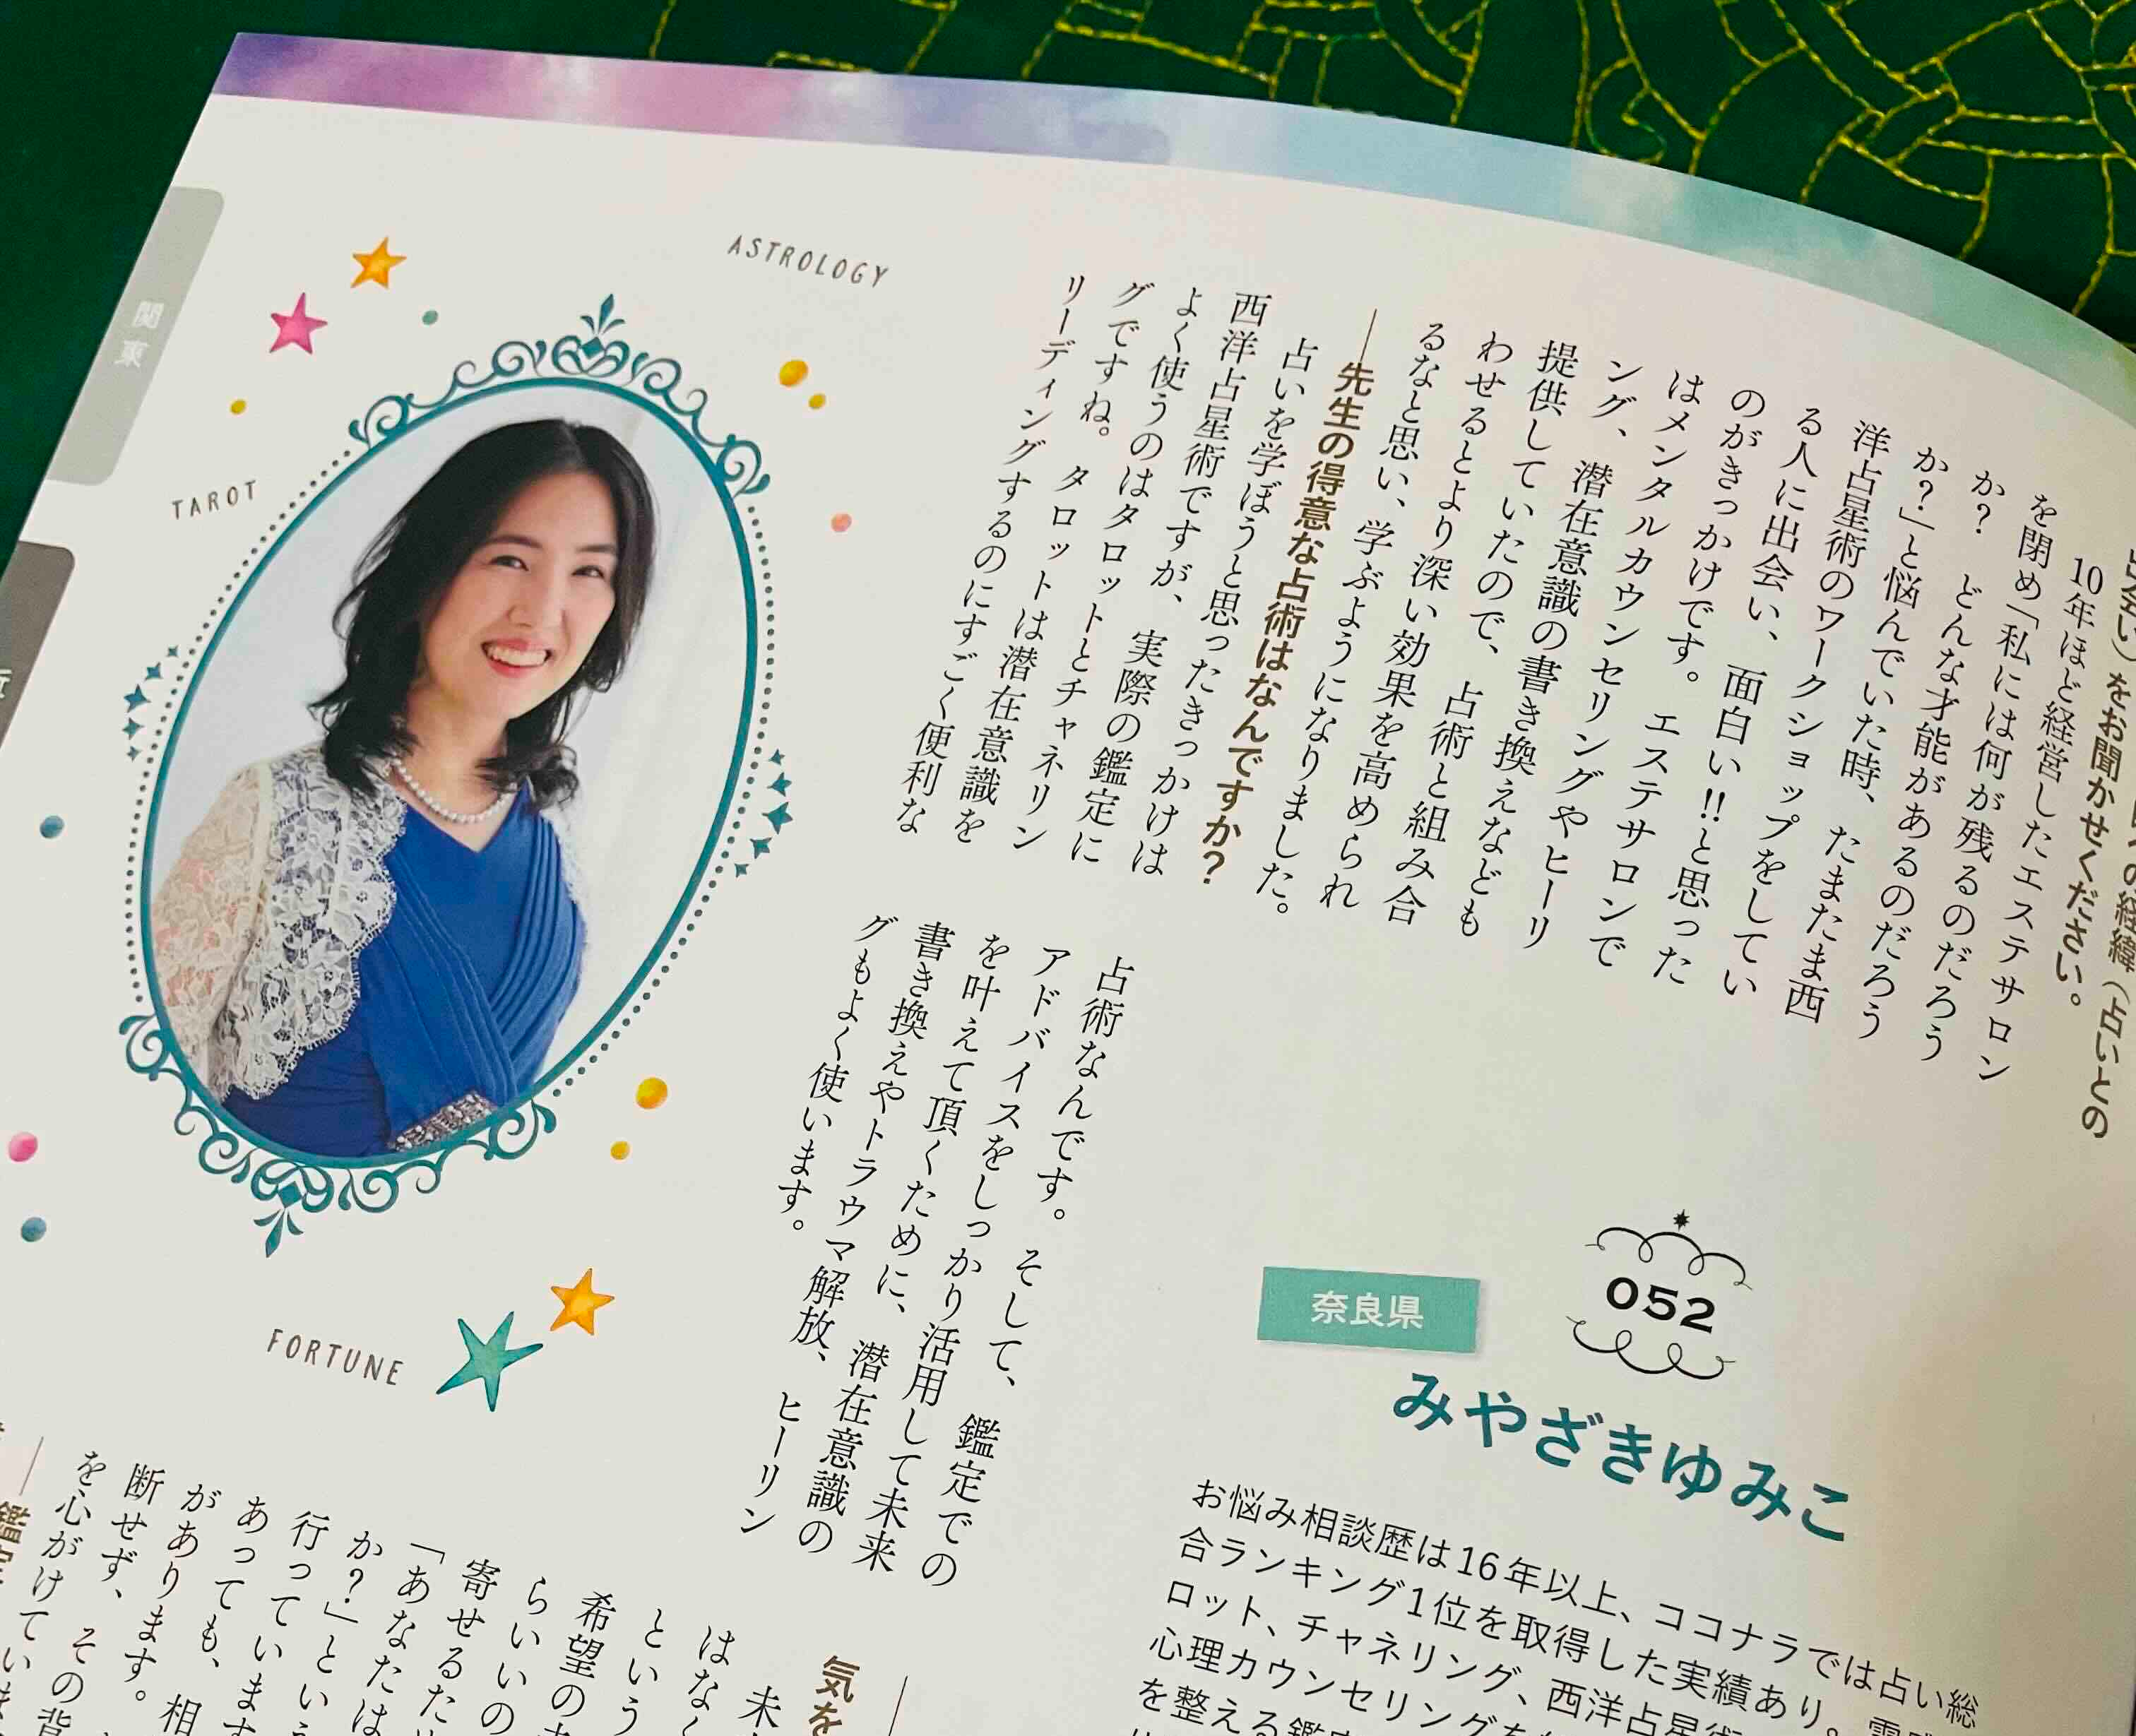 052
奈良県
みやざきゆみこ
お悩み相談歴は16年以上、ココナラでは占い総
合ランキング1位を取得した実績あり。
ロット、チャネリング、西洋占星術
心理カウンセリングを
を整える鑑定
をお聞かせください。
(占いとの
10年ほど経営したエステサロン
を閉め「私には何が残るのだろう
か? どんな才能があるのだろう
か?」と悩んでいた時、たまたま西
洋占星術のワークショップをしてい
る人に出会い、面白い!!と思った
のがきっかけです。エステサロンで
はメンタルカウンセリングやヒーリ
ング、潜在意識の書き換えなども
提供していたので、占術と組み合
わせるとより深い効果を高められ
るなと思い、学ぶようになりました。
―先生の得意な占術はなんですか?
占いを学ぼうと思ったきっかけは
西洋占星術ですが、実際の鑑定に
よく使うのはタロットとチャネリン
グですね。タロットは潜在意識を
リーディングするのにすごく便利な
占術なんです。そして、鑑定での
アドバイスをしっかり活用して未来
を叶えて頂くために、潜在意識の
書き換えやトラウマ解放、ヒーリン
グもよく使います。
ASTROLOGY
TAROT
FORTUNE
関東
気を
未
はなく
という
希望の
らいいの
寄せるた
「あなたは
か?」という
行っています
あっても、相
があります。
断せず、その背
を心がけていま
鑑定